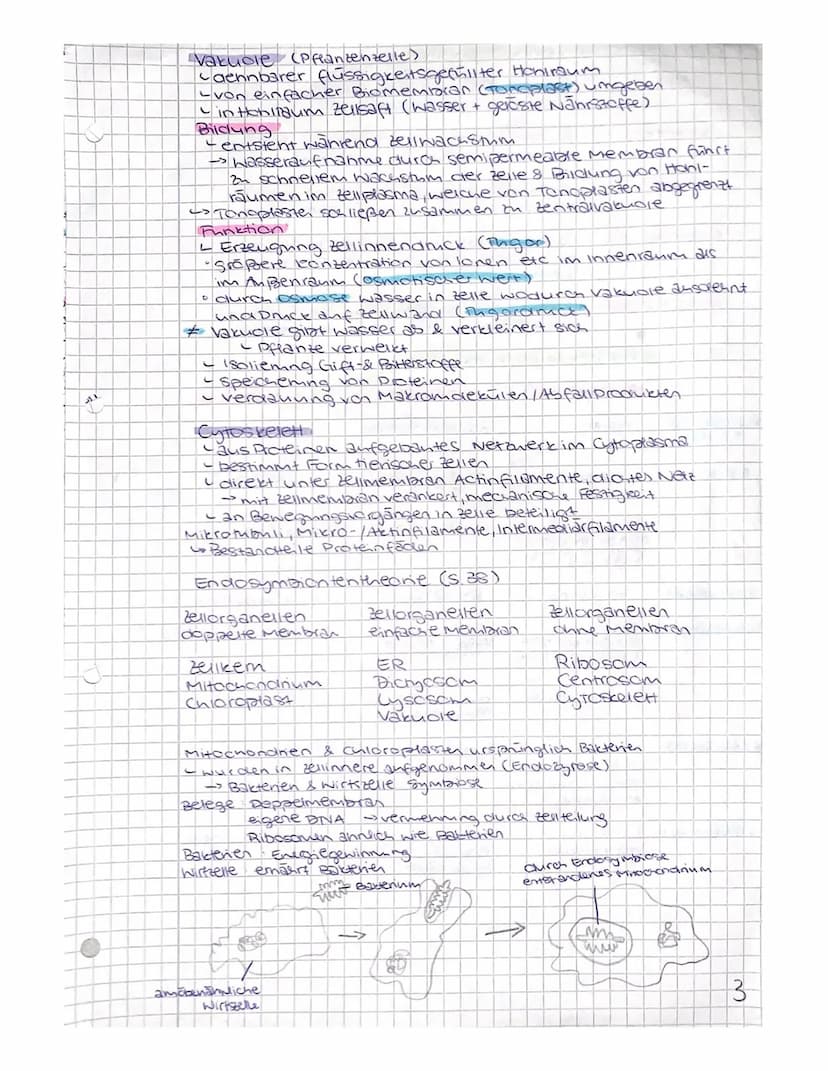 Vakuole (Pflanzenzelle)
↳ dehnbarer flüssigkeitsgefüllter Hohlraum
↳ von einfacher Biomembran (Tonoplast) umgeben
↳ in Hohlraum Zellsaft (Wasser + gelöste Nährstoffe)
Bildung
↳ entsteht während Zellwachstum
→ Wasseraufnahme durch semipermeable Membran führt
zu schnellem Wachstum der Zelle & Bildung von Hohl-
räumen im Zellplasma, welche von Tonoplasten abgegrenzt
↳ Tonoplasten schließen zusammen zu Zentralvakuole
Funktion
↳ Erzeugung Zellinnendruck (Turgor)
· größere Konzentration von Ionen etc im Innenraum als
im Außenraum (osmotischer Wert)
· durch Osmose Wasser in Zelle wodurch Vakuole ausdehnt
und Druck auf Zellwand (Turgordruck)
≠ Vakuole gibt Wasser ab & verkleinert sich
↳ Pflanze verwelkt
↳ Isolierung Gift- & Bitterstoffe
↳ Speicherung von Proteinen
↳ Verdauung von Makromolekülen / Abfallprodukten
Cytoskelett
↳ aus Proteinen aufgebautes Netzwerk im Cytoplasma
↳ bestimmt Form tierischer Zellen
↳ direkt unter Zellmembran Actinfilamente, dichtes Netz
→ mit Zellmembran verankert, mechanische Festigkeit
↳ an Bewegungsvorgängen in Zelle beteiligt
Mikrotubuli, Mikro-/Aktinfilamente, Intermediärfilamente
↳ Bestandteile Proteinfäden
Endosymbiontentheorie (S. 38)
Zellorganellen Zellorganellen Zellorganellen
doppelte Membran einfache Membran ohne Membran
Zellkern ER Ribosom
Mitochondrium Dictyosom Centrosom
Chloroplast Lysosom Cytoskelett
Vakuole
Mitochondrien & Chloroplasten ursprünglich Bakterien
↳ wurden in Zellinnere aufgenommen (Endozytose)
→ Bakterien & Wirtszelle Symbiose
Belege: Doppelmembran
eigene DNA → Vermehrung durch Zellteilung
Ribosomen ähnlich wie Bakterien
Bakterien: Energiegewinnung
Wirtzelle ernährt Bakterien
Bakterium
durch Endosymbiose
entstandenes Mitochondrium
amöbenähnliche
Wirtszelle
3